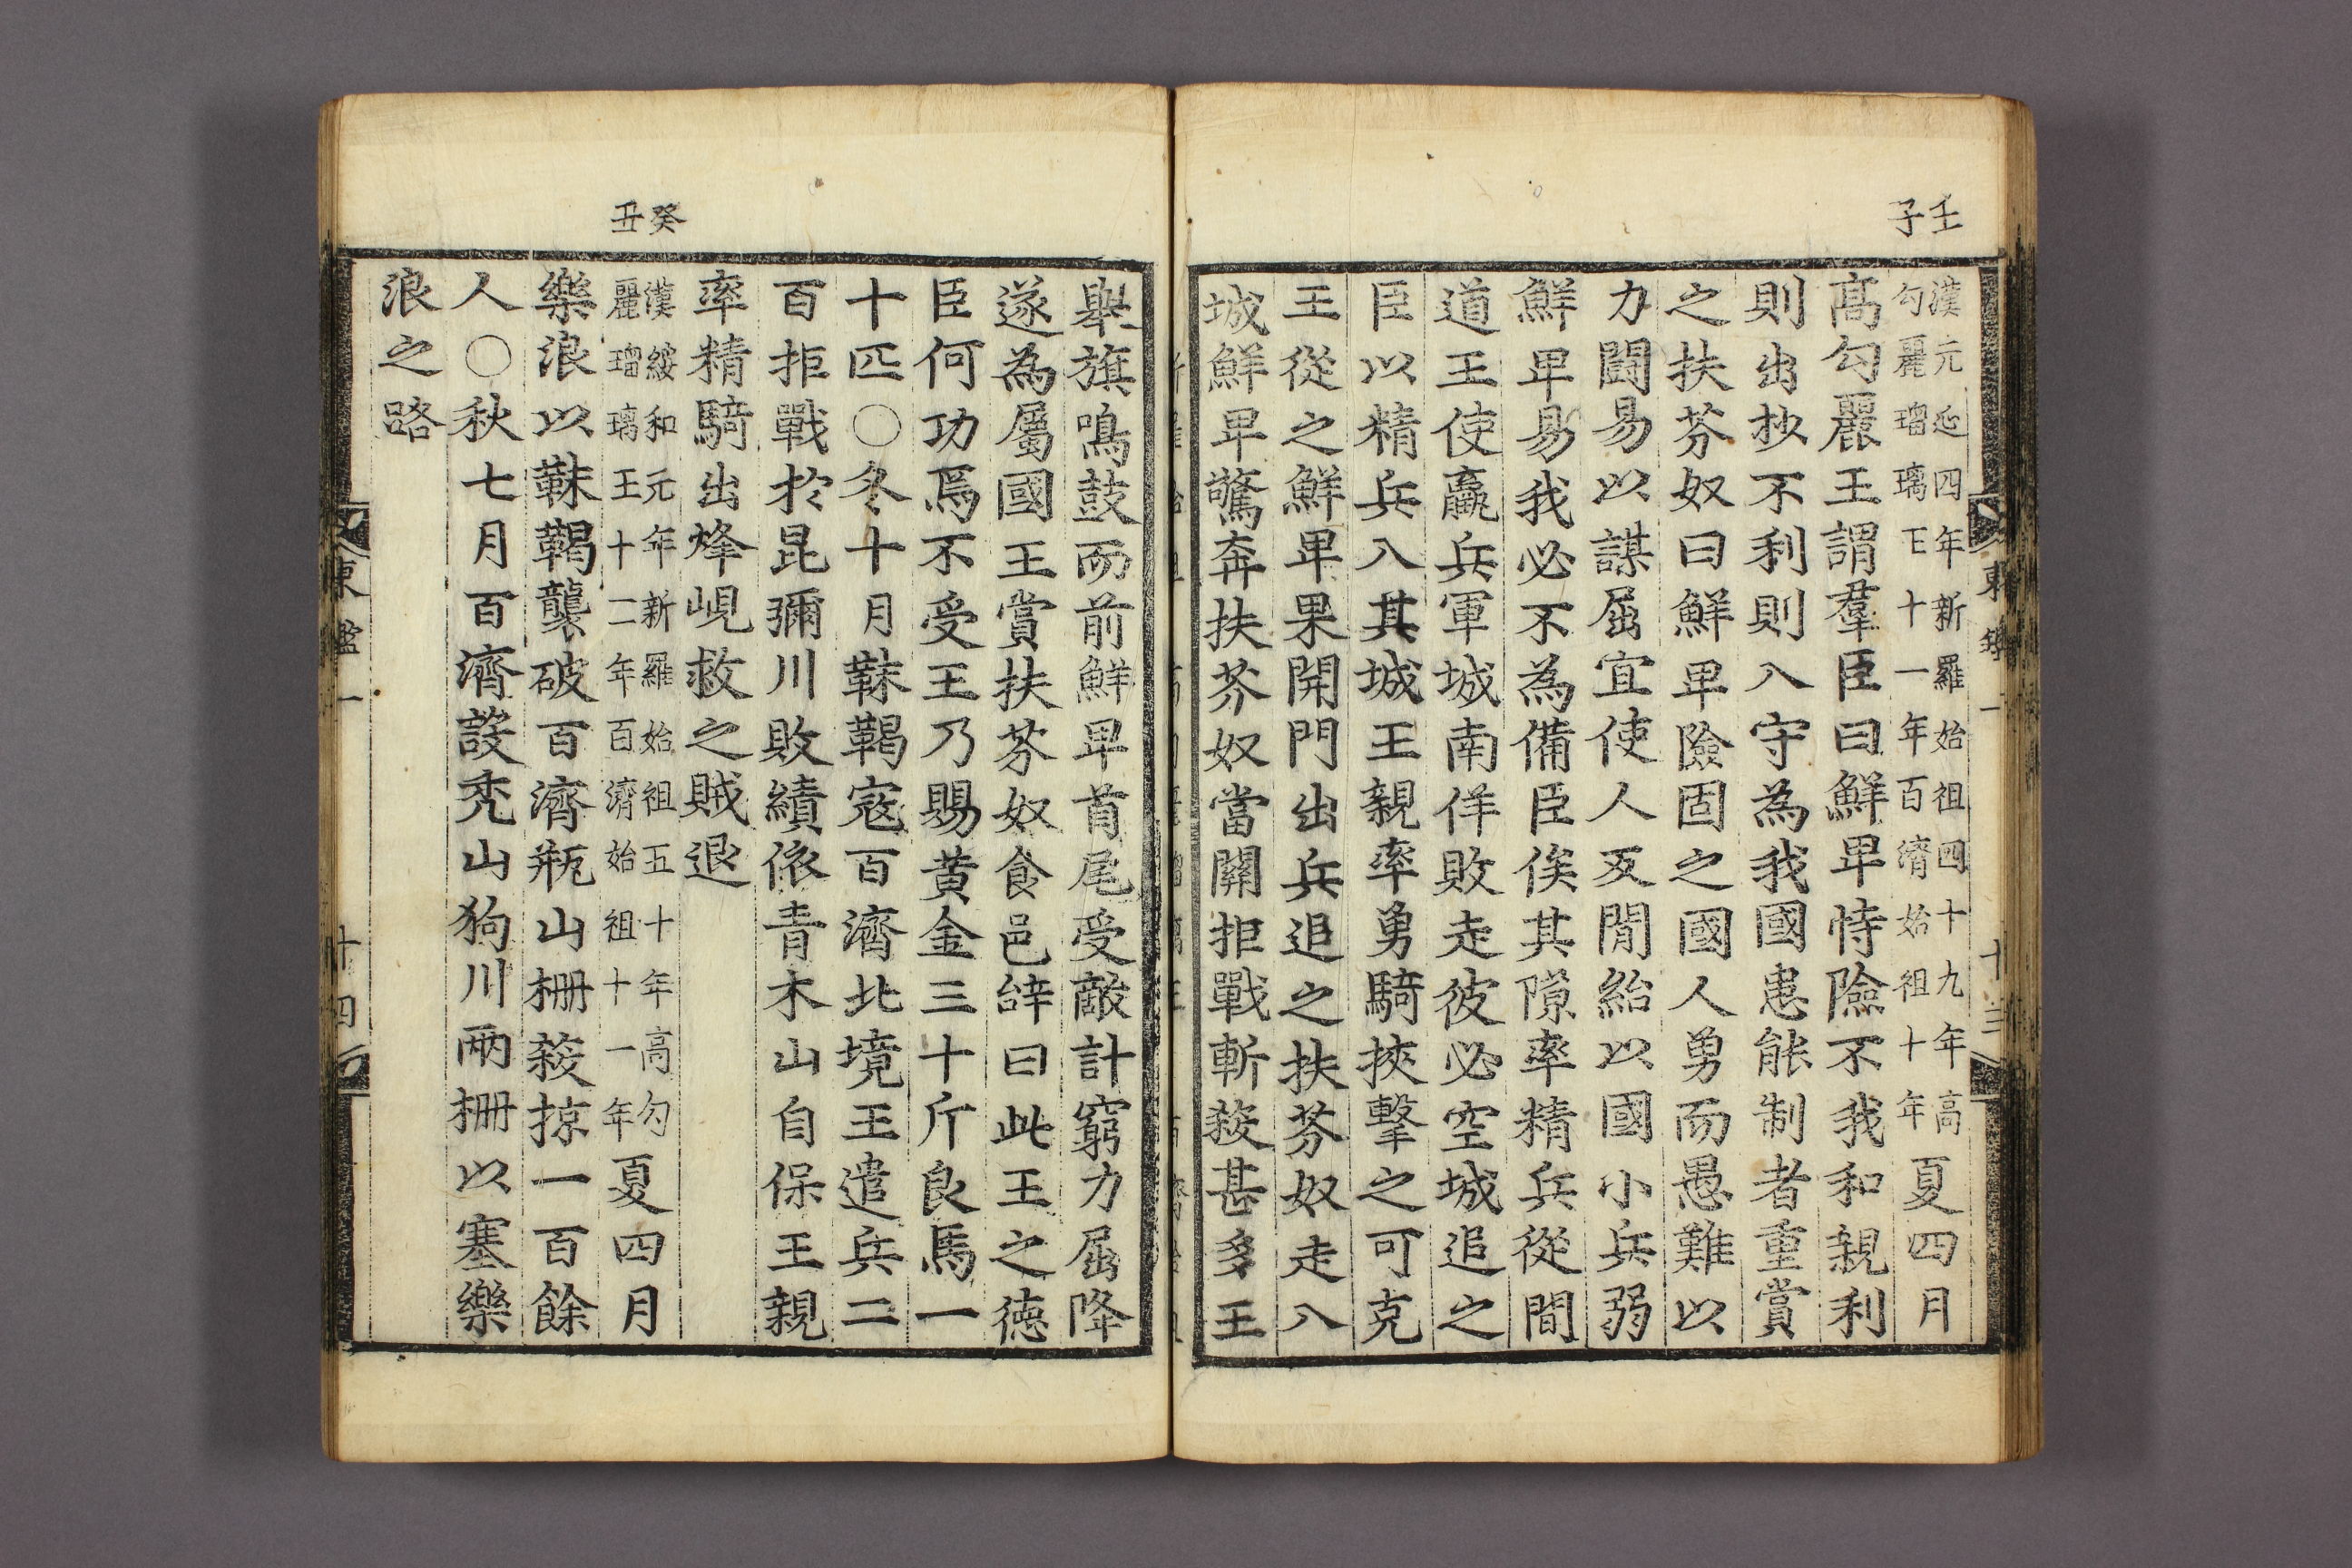 壬子
漢元延四年新羅始祖四十九年高
勾麗瑠璃王十一年百濟始祖十年
夏四月
高勾麗王謂羣臣曰鮮卑恃險不我和親利
則出抄不利則入守為我國患能制者重賞
之扶芬奴曰鮮卑險固之國人勇而愚難以
力鬪易以謀屈宜使人反間紿以國小兵弱
鮮卑易我必不為備臣俟其隙率精兵從間
道王使羸兵軍城南佯敗走彼必空城追之
臣以精兵入其城王親率勇騎挾擊之可克
王從之鮮卑果開門出兵追之扶芬奴走入
城鮮卑驚奔扶芬奴當關拒戰斬殺甚多王
東鑑一
十三
癸丑
舉旗鳴鼓而前鮮卑首尾受敵計窮力屈降
遂為屬國王賞扶芬奴食邑辭曰此王之德
臣何功焉不受王乃賜黃金三十斤良馬一
十匹○冬十月靺鞨寇百濟北境王遣兵二
百拒戰於昆彌川敗績依青木山自保王親
率精騎出烽峴救之賊退
漢綏和元年新羅始祖五十年高勾
麗瑠璃王十二年百濟始祖十一年
夏四月
樂浪以靺鞨襲破百濟甁山柵殺掠一百餘
人○秋七月百濟設禿山狗川兩柵以塞樂
浪之路
東鑑一
十四